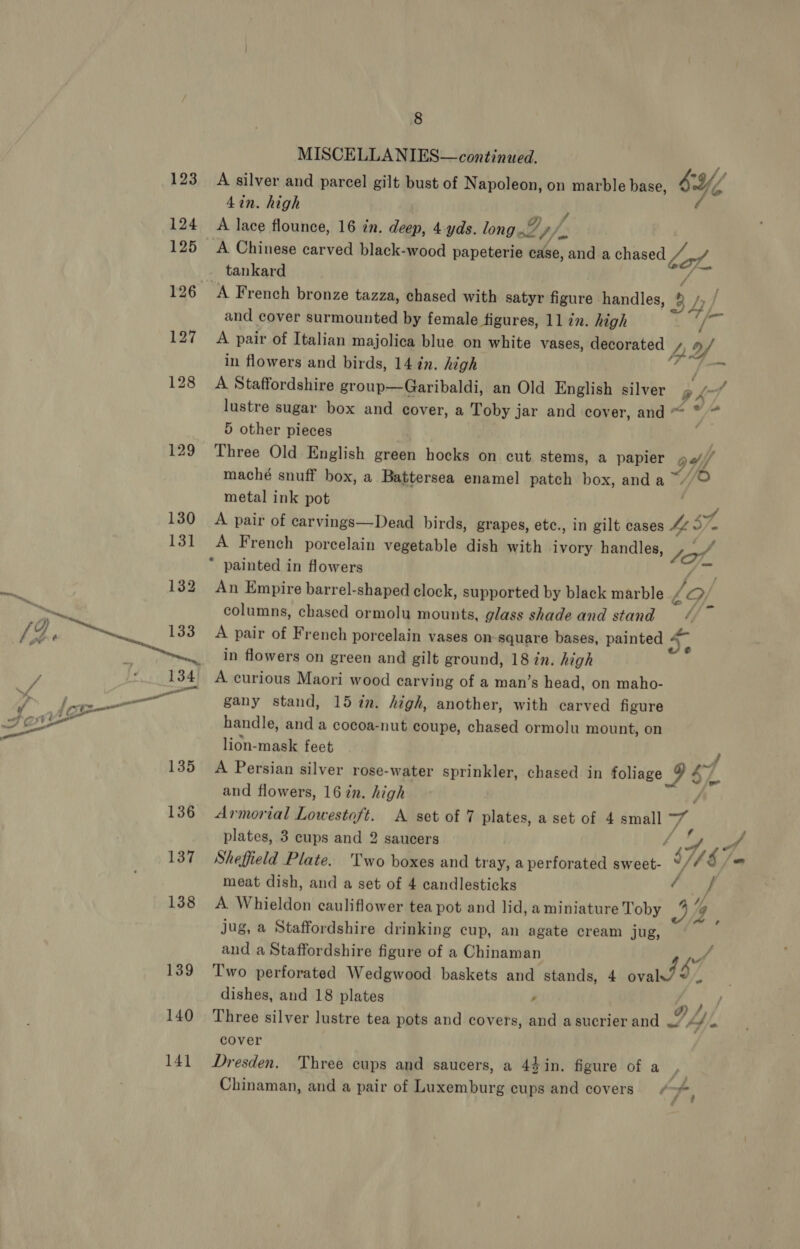 8
MISCELLANIES—continued.
123 A silver and parcel gilt bust of Napoleon, on marble base,
4 in. high
124 A lace flounce, 16 in. deep, 4 yds. long
125 A Chinese carved black-wood papeterie case, and a chased
tankard
126 A French bronze tazza, chased with satyr figure handles,
and cover surmounted by female figures, 11 in. high
127 A pair of Italian majolica blue on white vases, decorated
in flowers and birds, 14 in. high
128 A Staffordshire group—Garibaldi, an Old English silver
lustre sugar box and cover, a Toby jar and cover, and
5 other pieces
129 Three Old English green hocks on cut stems, a papier
maché snuff box, a Battersea enamel patch box, and a
metal ink pot
130 A pair of carvings—Dead birds, grapes, etc., in gilt cases
131 A French porcelain vegetable dish with ivory handles,
painted in flowers
132 An Empire barrel-shaped clock, supported by black marble
columns, chased ormolu mounts, glass shade and stand
133 A pair of French porcelain vases on square bases, painted
in flowers on green and gilt ground, 18 in. high
134 A curious Maori wood carving of a man's head, on maho-
gany stand, 15 in. high, another, with carved figure
handle, and a cocoa-nut coupe, chased ormolu mount, on
lion-mask feet
135 A Persian silver rose-water sprinkler, chased in foliage
and flowers, 16 in. high
136 Armorial Lowestoft. A set of 7 plates, a set of 4 small
plates, 3 cups and 2 saucers
137 Sheffield Plate. Two boxes and tray, a perforated sweet-
meat dish, and a set of 4 candlesticks
138 A Whieldon cauliflower tea pot and lid, a miniature Toby
jug, a Staffordshire drinking cup, an agate cream jug,
and a Staffordshire figure of a Chinaman
139 Two perforated Wedgwood baskets and stands, 4 oval
dishes, and 18 plates
140 Three silver lustre tea pots and covers, and a sucrier and
cover
141 Dresden. Three cups and saucers, a 4½ in. figure of a
Chinaman, and a pair of Luxemburg cups and covers